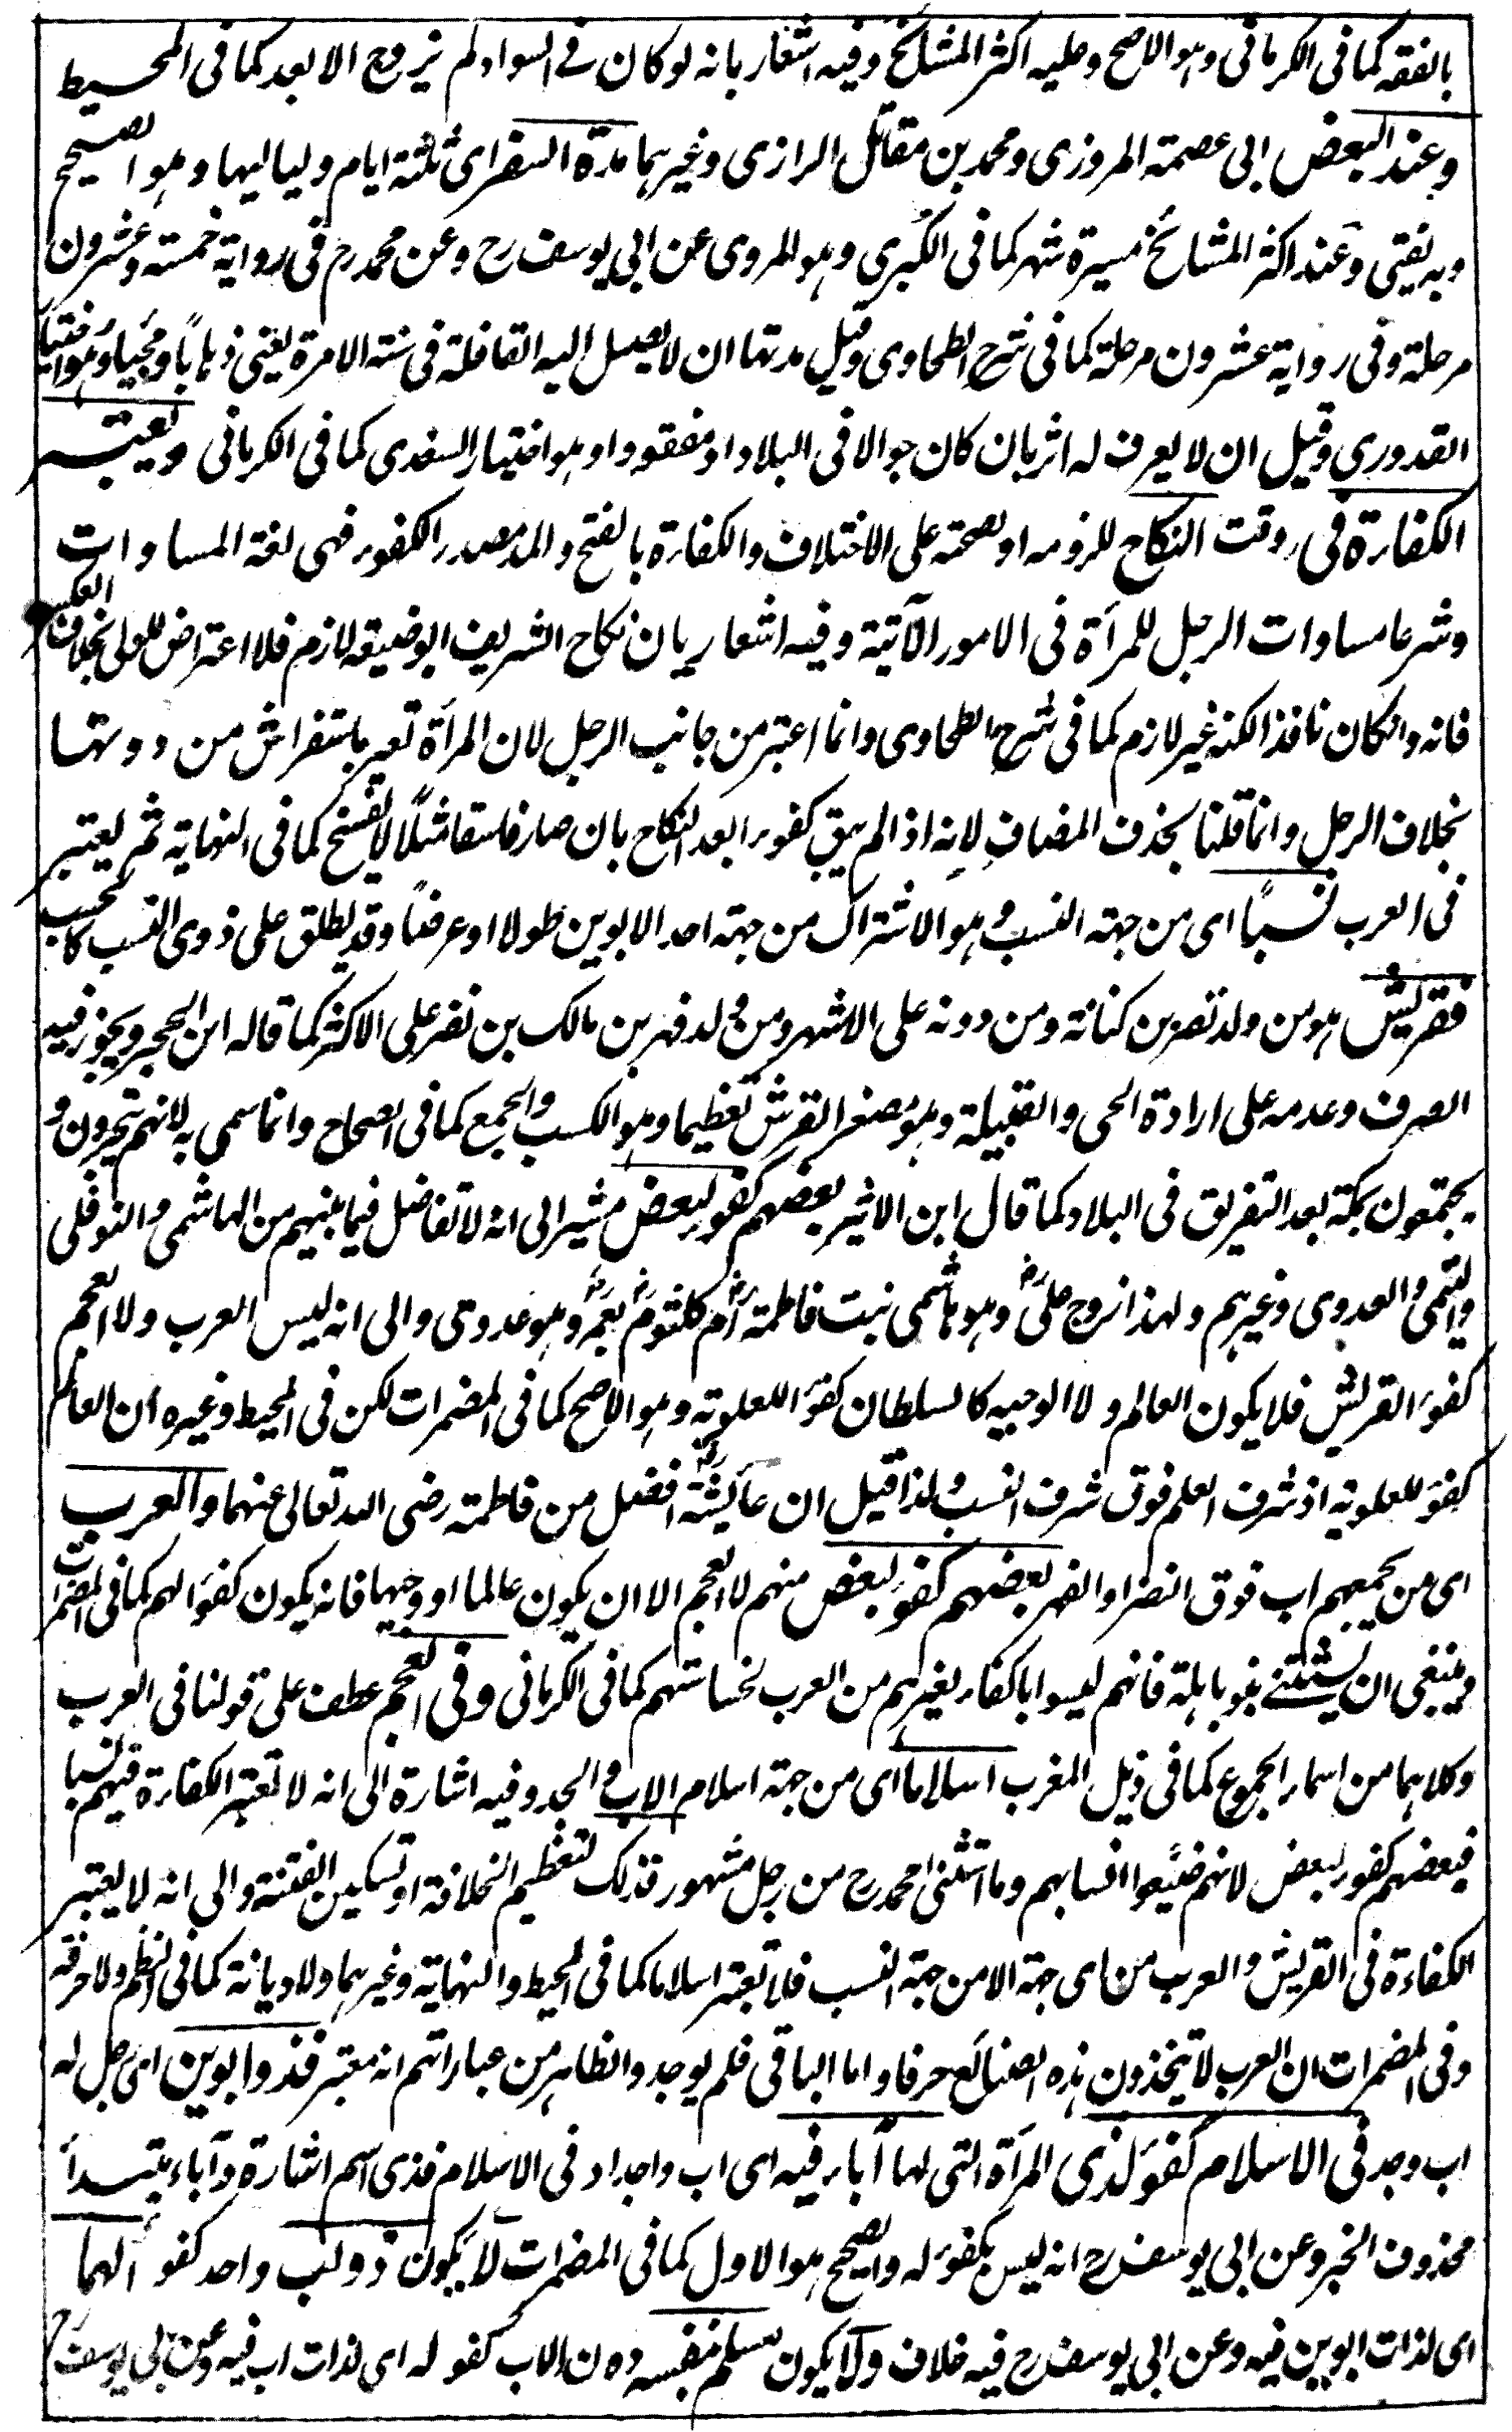 بالفقه كما فى الكرمانى وهو الاصح وعليه اكثر المشائخ وفيه اشعار بانه لو كان فى السواد لم يزوج الابعد كما فى المحيط
وعند البعض ابى عصمة المروزى ومحمد بن مقاتل الرازى وغيرهما مدة السفر اى ثلثة ايام ولياليها وهو الصحيح
وبه يفتى وعند اكثر المشائخ مسيرة شهر كما فى الكبرى وهو المروى عن ابى يوسف رح وعن محمد رح فى رواية خمسة وعشرون
مرحلة وفى رواية عشرون مرحلة كما فى شرح الطحاوى وقيل مدتها ان لا يصل اليه القافلة فى سنة الا مرة يعنى ذهابًا ومجيئا وهو اختيار
القدورى وقيل ان لا يعرف له اثر بان كان جوالا فى البلاد او مفقودا وهو اختيار السغدى كما فى الكرمانى وتعتبر
الكفاءة فى وقت النكاح للزومه او لصحته على الاختلاف والكفاءة بالفتح والمد مصدر الكفوء فهى لغة المساوات
وشرعا مساوات الرجل للمرأة فى الامور الآتية وفيه اشعار بان نكاح الشريف الوضيعة لازم فلا اعتراض للولى بخلاف العكس
فانه وان كان نافذا لكنه غير لازم كما فى شرح الطحاوى وانما اعتبر من جانب الرجل لان المرأة تعير باستفراش من دونها
بخلاف الرجل وانما قلنا بحذف المضاف لانه اذا لم يبق كفوءا بعد النكاح بان صار فاسقا مثلًا لا يفسخ كما فى النهاية ثم يعتبر
فى العرب نسبًا اى من جهة النسب وهو الاشتراك من جهة احد الابوين طولا او عرضًا وقد يطلق على ذوى النسب كالحسب
فقريش هو من ولد نضر بن كنانة ومن دونه على الاشهر ومن ولد فهر بن مالك بن نضر على الاكثر كما قاله ابن الحجر ويجوز فيه
الصرف وعدمه على ارادة الحى والقبيلة وهو مصغر القرش تعظيما وهو الكسب والجمع كما فى الصحاح وانما سمى به لانهم يتجرون و
يجتمعون بمكة بعد التفريق فى البلاد كما قال ابن الاثير بعضهم كفو لبعض مشير الى انه لا تفاضل فيما بينهم من الهاشمى والنوفلى
والتيمى والعدوى وغيرهم ولهذا زوج على رض وهو هاشمى بنت فاطمة رض ام كلثوم رض بعمر رض وهو عدوى والى انه ليس العرب ولا العجم
كفوء القريش فلا يكون العالم ولا الوجيه كالسلطان كفوء اللعلوية وهو الاصح كما فى المضمرات لكن فى المحيط وغيره ان العالم
كفوء للعلوية اذ شرف العلم فوق شرف النسب ولذا قيل ان عائشة رض افضل من فاطمة رضى الله تعالى عنهما والعرب
اى من يجمعهم اب فوق النضر او الفهر بعضهم كفوء لبعض منهم لا العجم الا ان يكون عالما او وجيها فانه يكون كفوء الهم كما فى المضمرات
وينبغى ان يستثنى بنو باهلة فانهم ليسوا باكفاء لغيرهم من العرب لخساستهم كما فى الكرمانى وفى العجم عطف على قولنا فى العرب
وكلاهما من اسماء الجموع كما فى ذيل المغرب اسلاما اى من جهة اسلام الاب والجد وفيه اشارة الى انه لا تعتبر الكفاءة فيهم نسبا
فبعضهم كفوء لبعض لانهم ضيّعوا انسابهم وما استثنى محمد رح من رجل مشهور فذلك لتعظيم الخلافة او تسكين الفتنة والى انه لا يعتبر
الكفاءة فى القريش والعرب من اى جهة الا من جهة النسب فلا تعتبر اسلاما كما فى المحيط والنهاية وغيرهما ولا ديانة كما فى النظم ولا حرفة
وفى المضمرات ان العرب لا يتخذون هذه الصنائع حرفا واما الباقى فلم يوجد والظاهر من عباراتهم انه معتبر فذو ابوين اى رجل له
اب وجد فى الاسلام كفوء لذى المرأة التى لها آباء فيه اى اب واجداد فى الاسلام فذى اسم اشارة وآباء مبتدأ
محذوف الخبر وعن ابى يوسف رح انه ليس بكفوء له والصحيح هو الاول كما فى المضمرات لا يكون ذو اب واحد كفوءًا لهما
اى لذات ابوين فيه وعن ابى يوسف رح فيه خلاف ولا يكون مسلم بنفسه دون الاب كفو له اى لذات اب فيه وعن ابى يوسف رح